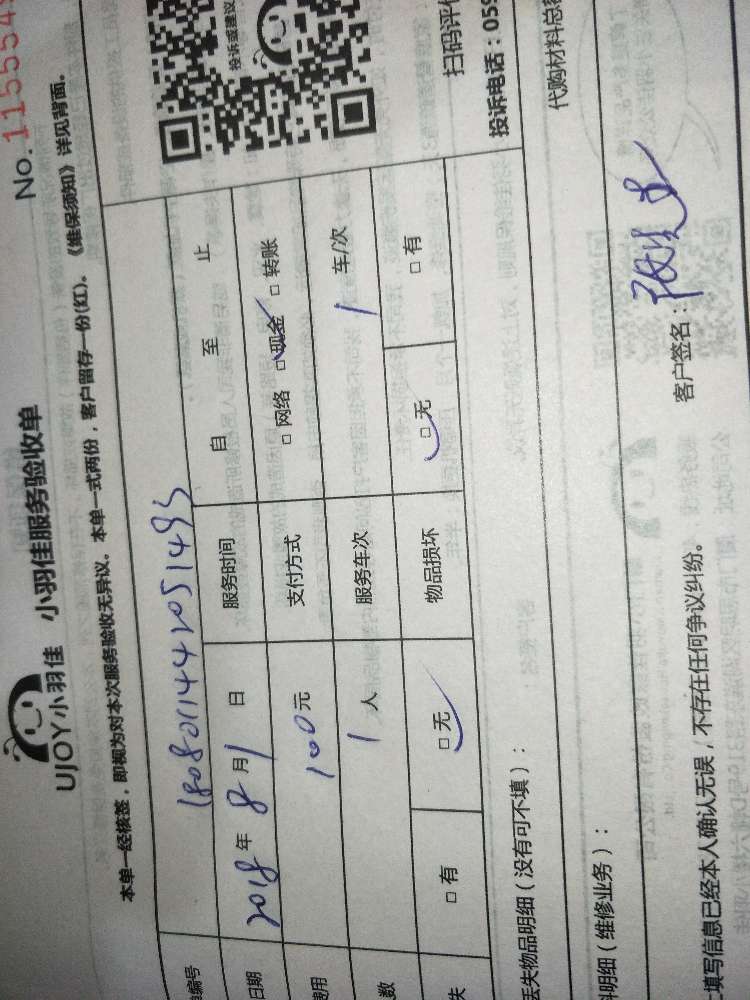 No. 115554
UJOY小羽佳 小羽佳服务验收单
本单一经核签，即视为对本次服务验收无异议。本单一式两份，客户留存一份(红)。《维保须知》详见背面。
编号 1808011442051493
日期 2018年8月1日 服务时间 自 至 止
用 100元 支付方式 □网络 □现金 □转账
数 1人 服务车次 1车/次
失 □有 □无 物品损坏 □无 □有
投诉或建议
扫码评价
投诉电话：059
失物品明细（没有可不填）：
代购材料总额
明细（维修业务）：
填写信息已经本人确认无误，不存在任何争议纠纷。
客户签名：